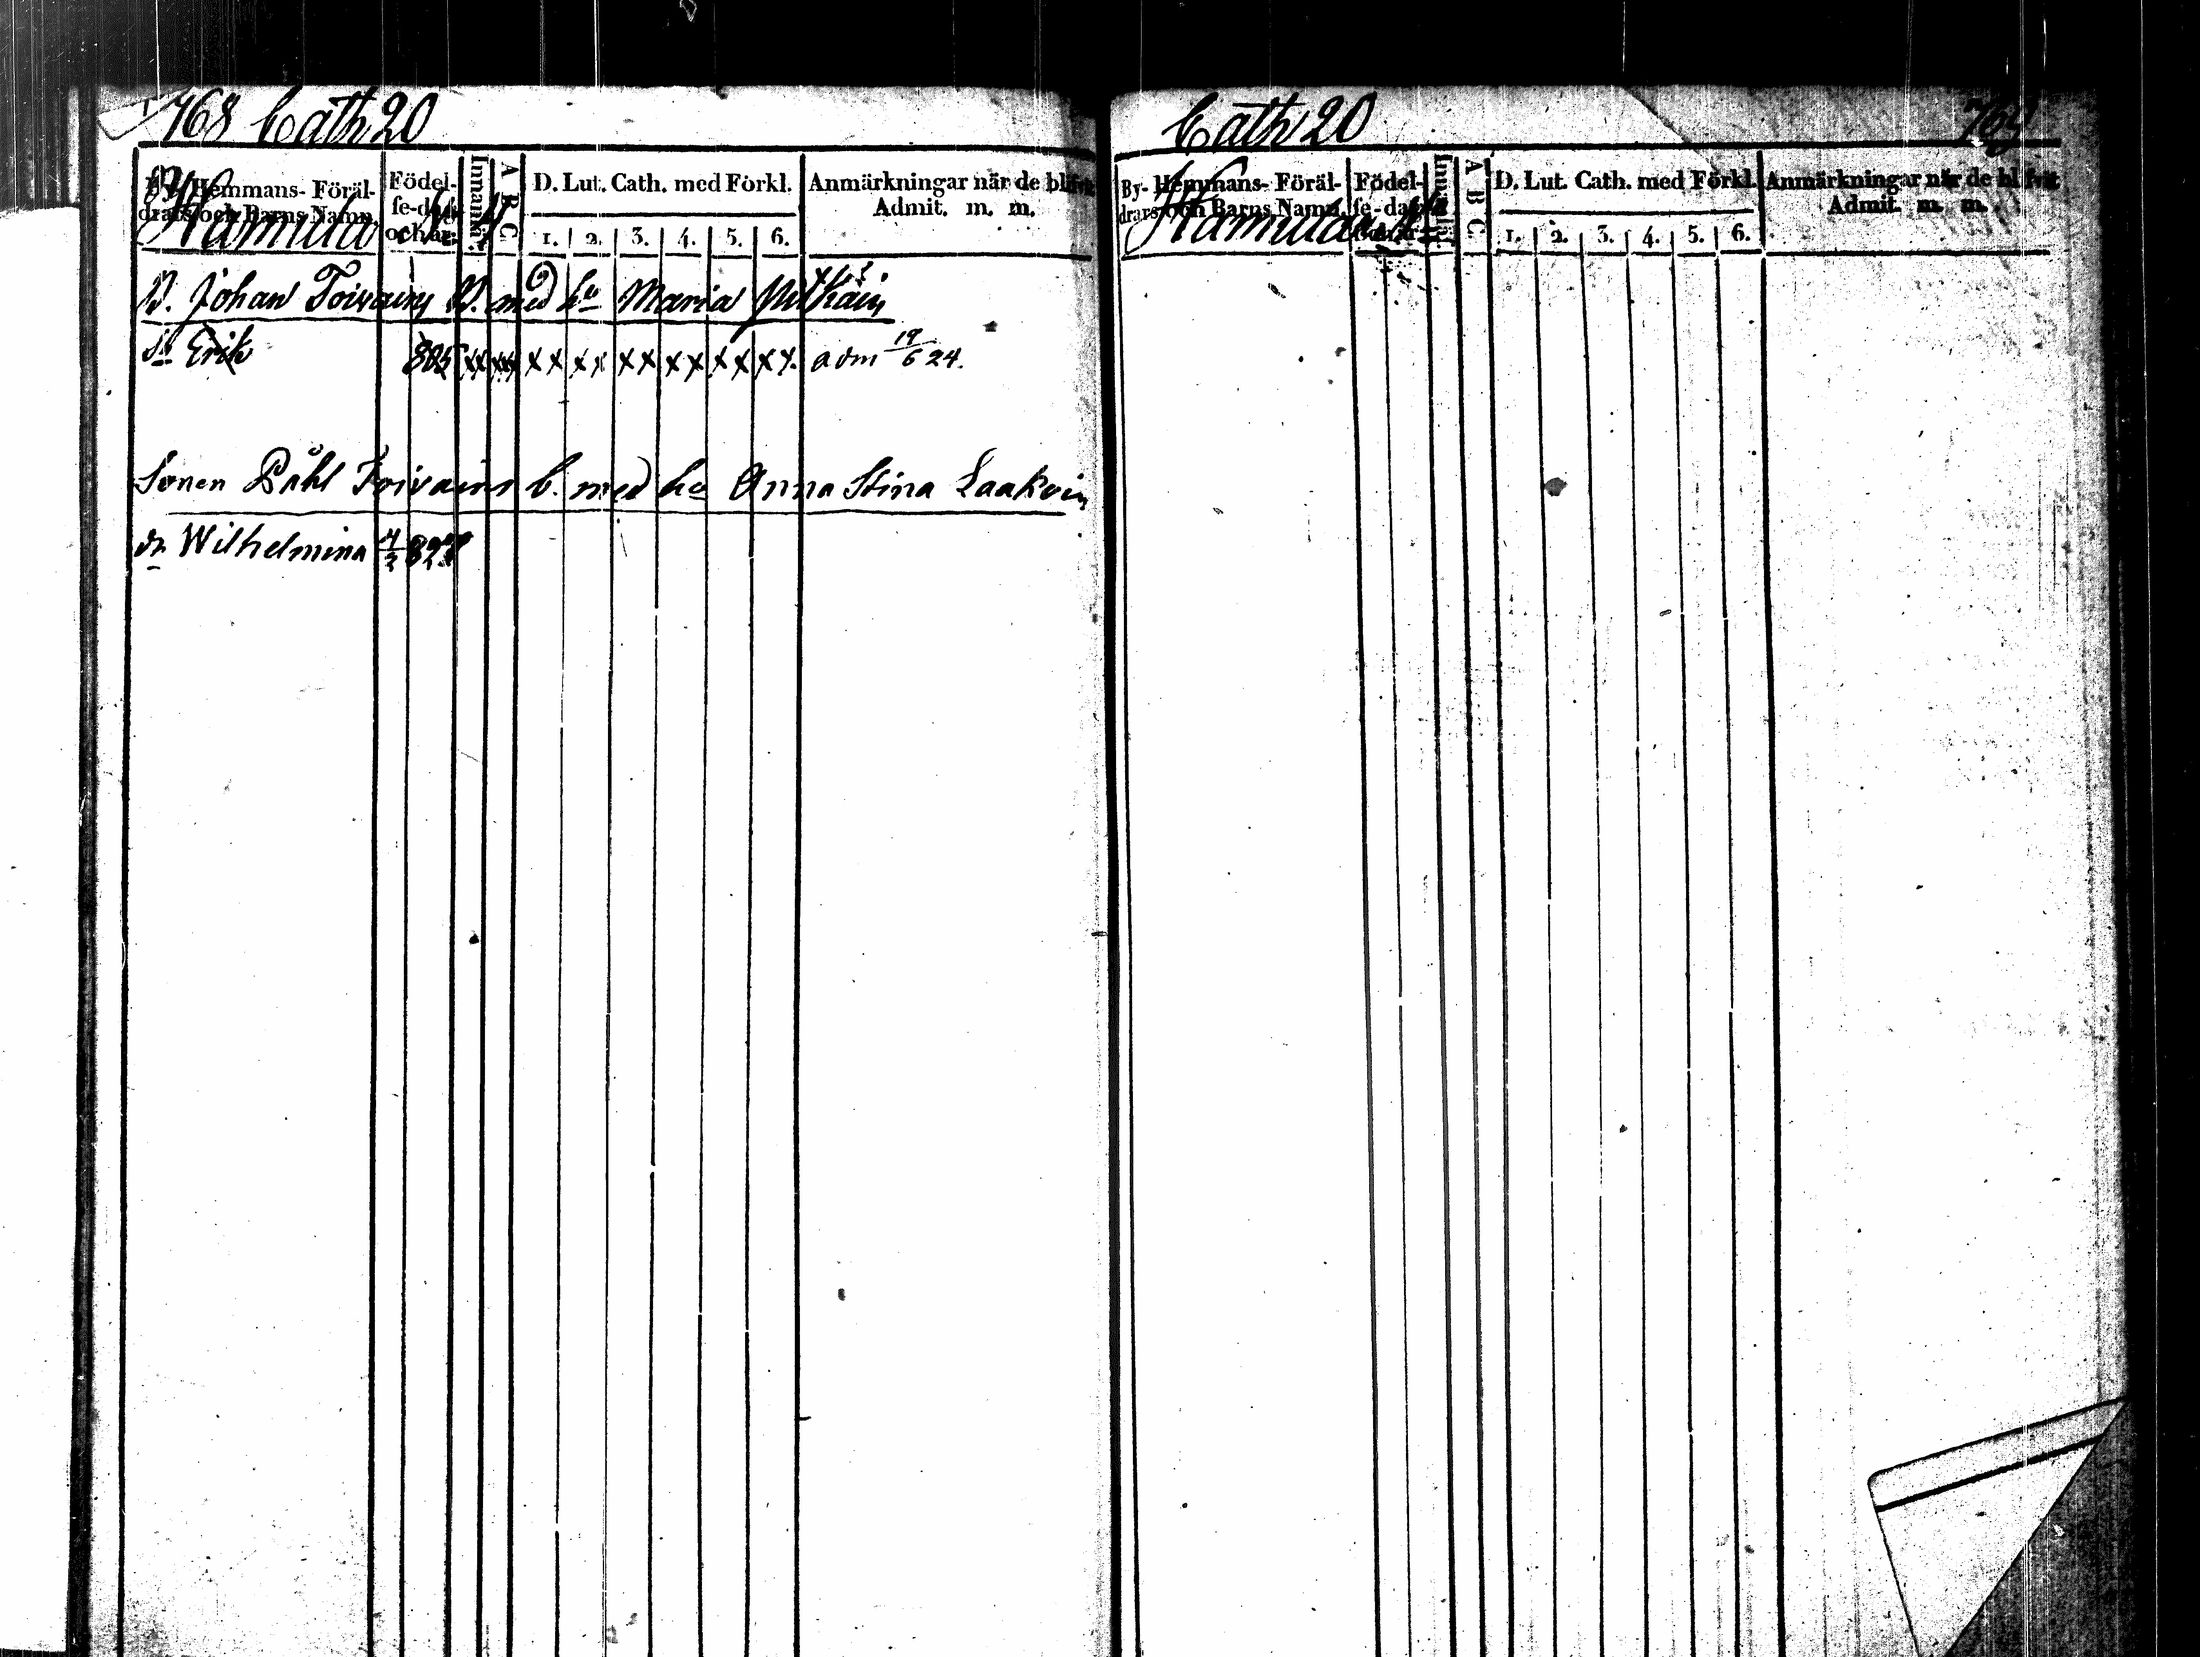 768 Cath 20
By- Hemmans- Föräl-
drars och Barns Namn.
Hamula
Födel-
se-dag
och år.
Innanl:
A B C
D. Lut. Cath. med Förkl.
1. 2. 3. 4. 5. 6.
Anmärkningar när de blifvit
Admit. m. m.
B. Johan Toivain B. med hu Maria
sn Erik 805 xx xx xx xx xx xx xx xx adm 19/6 24.
Sonen Påhl Toivain b. med hu Anna Stina Laakoin
dr Wilhelmina
Cath 20 769
By- Hemmans- Föräl-
drars och Barns Namn.
Hamula
Födel-
se-dag
Innanl:
A B C
D. Lut. Cath. med Förkl.
1. 2. 3. 4. 5. 6.
Anmärkningar när de blifvit
Admit. m. m.